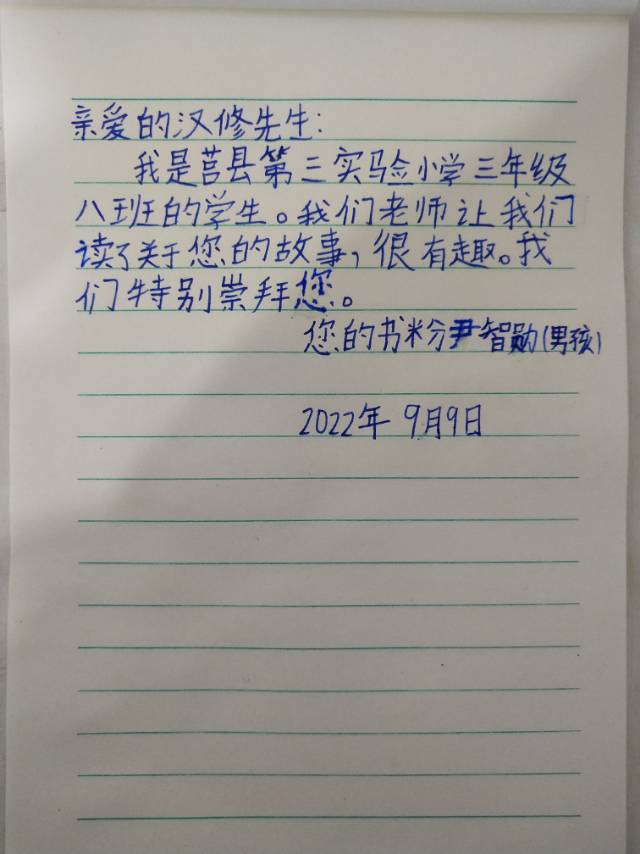 亲爱的汉修先生:
我是莒县第三实验小学三年级
八班的学生。我们老师让我们
读了关于您的故事,很有趣。我
们特别崇拜您。
您的书粉尹智勋(男孩)
2022年9月9日